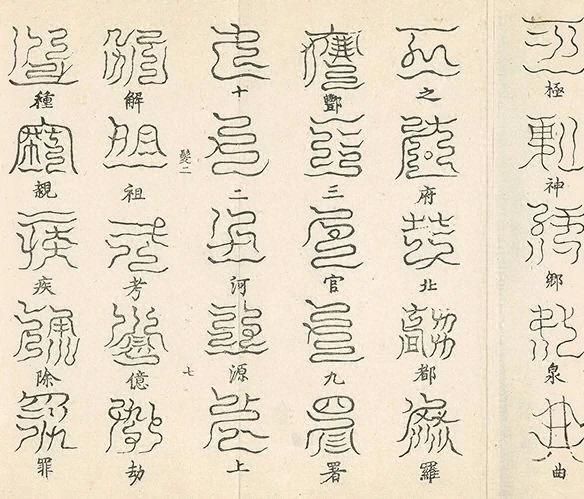 極神鄉泉曲
之府北都羅
酆三官九署
十二河源上
髮二 七
解祖考億劫
種親疾除罪